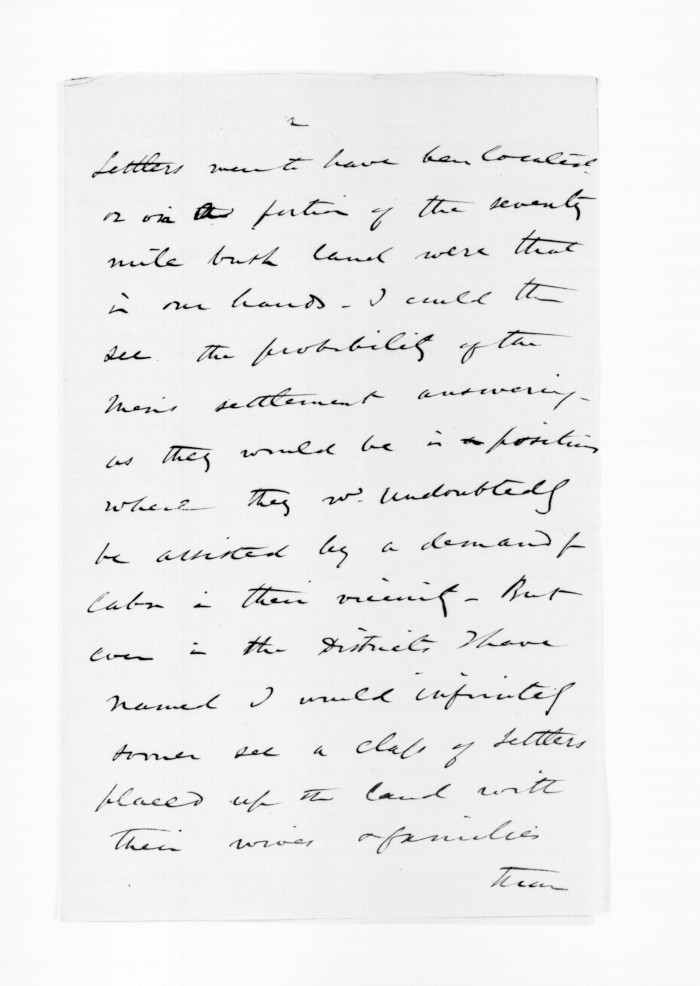 2
Settlers were to have been localised
or on portion of the seventy
mile bush land were that
in our hands - I could then
see the probability of the
Men's settlement answering -
as they would be in a position
where they wd. undoubtedly
be assisted by a demand for
labor in their vicinity - But
even in the Districts I have
named I would infinitely
sooner see a class of Settlers
placed up the land with
their wives & families
than